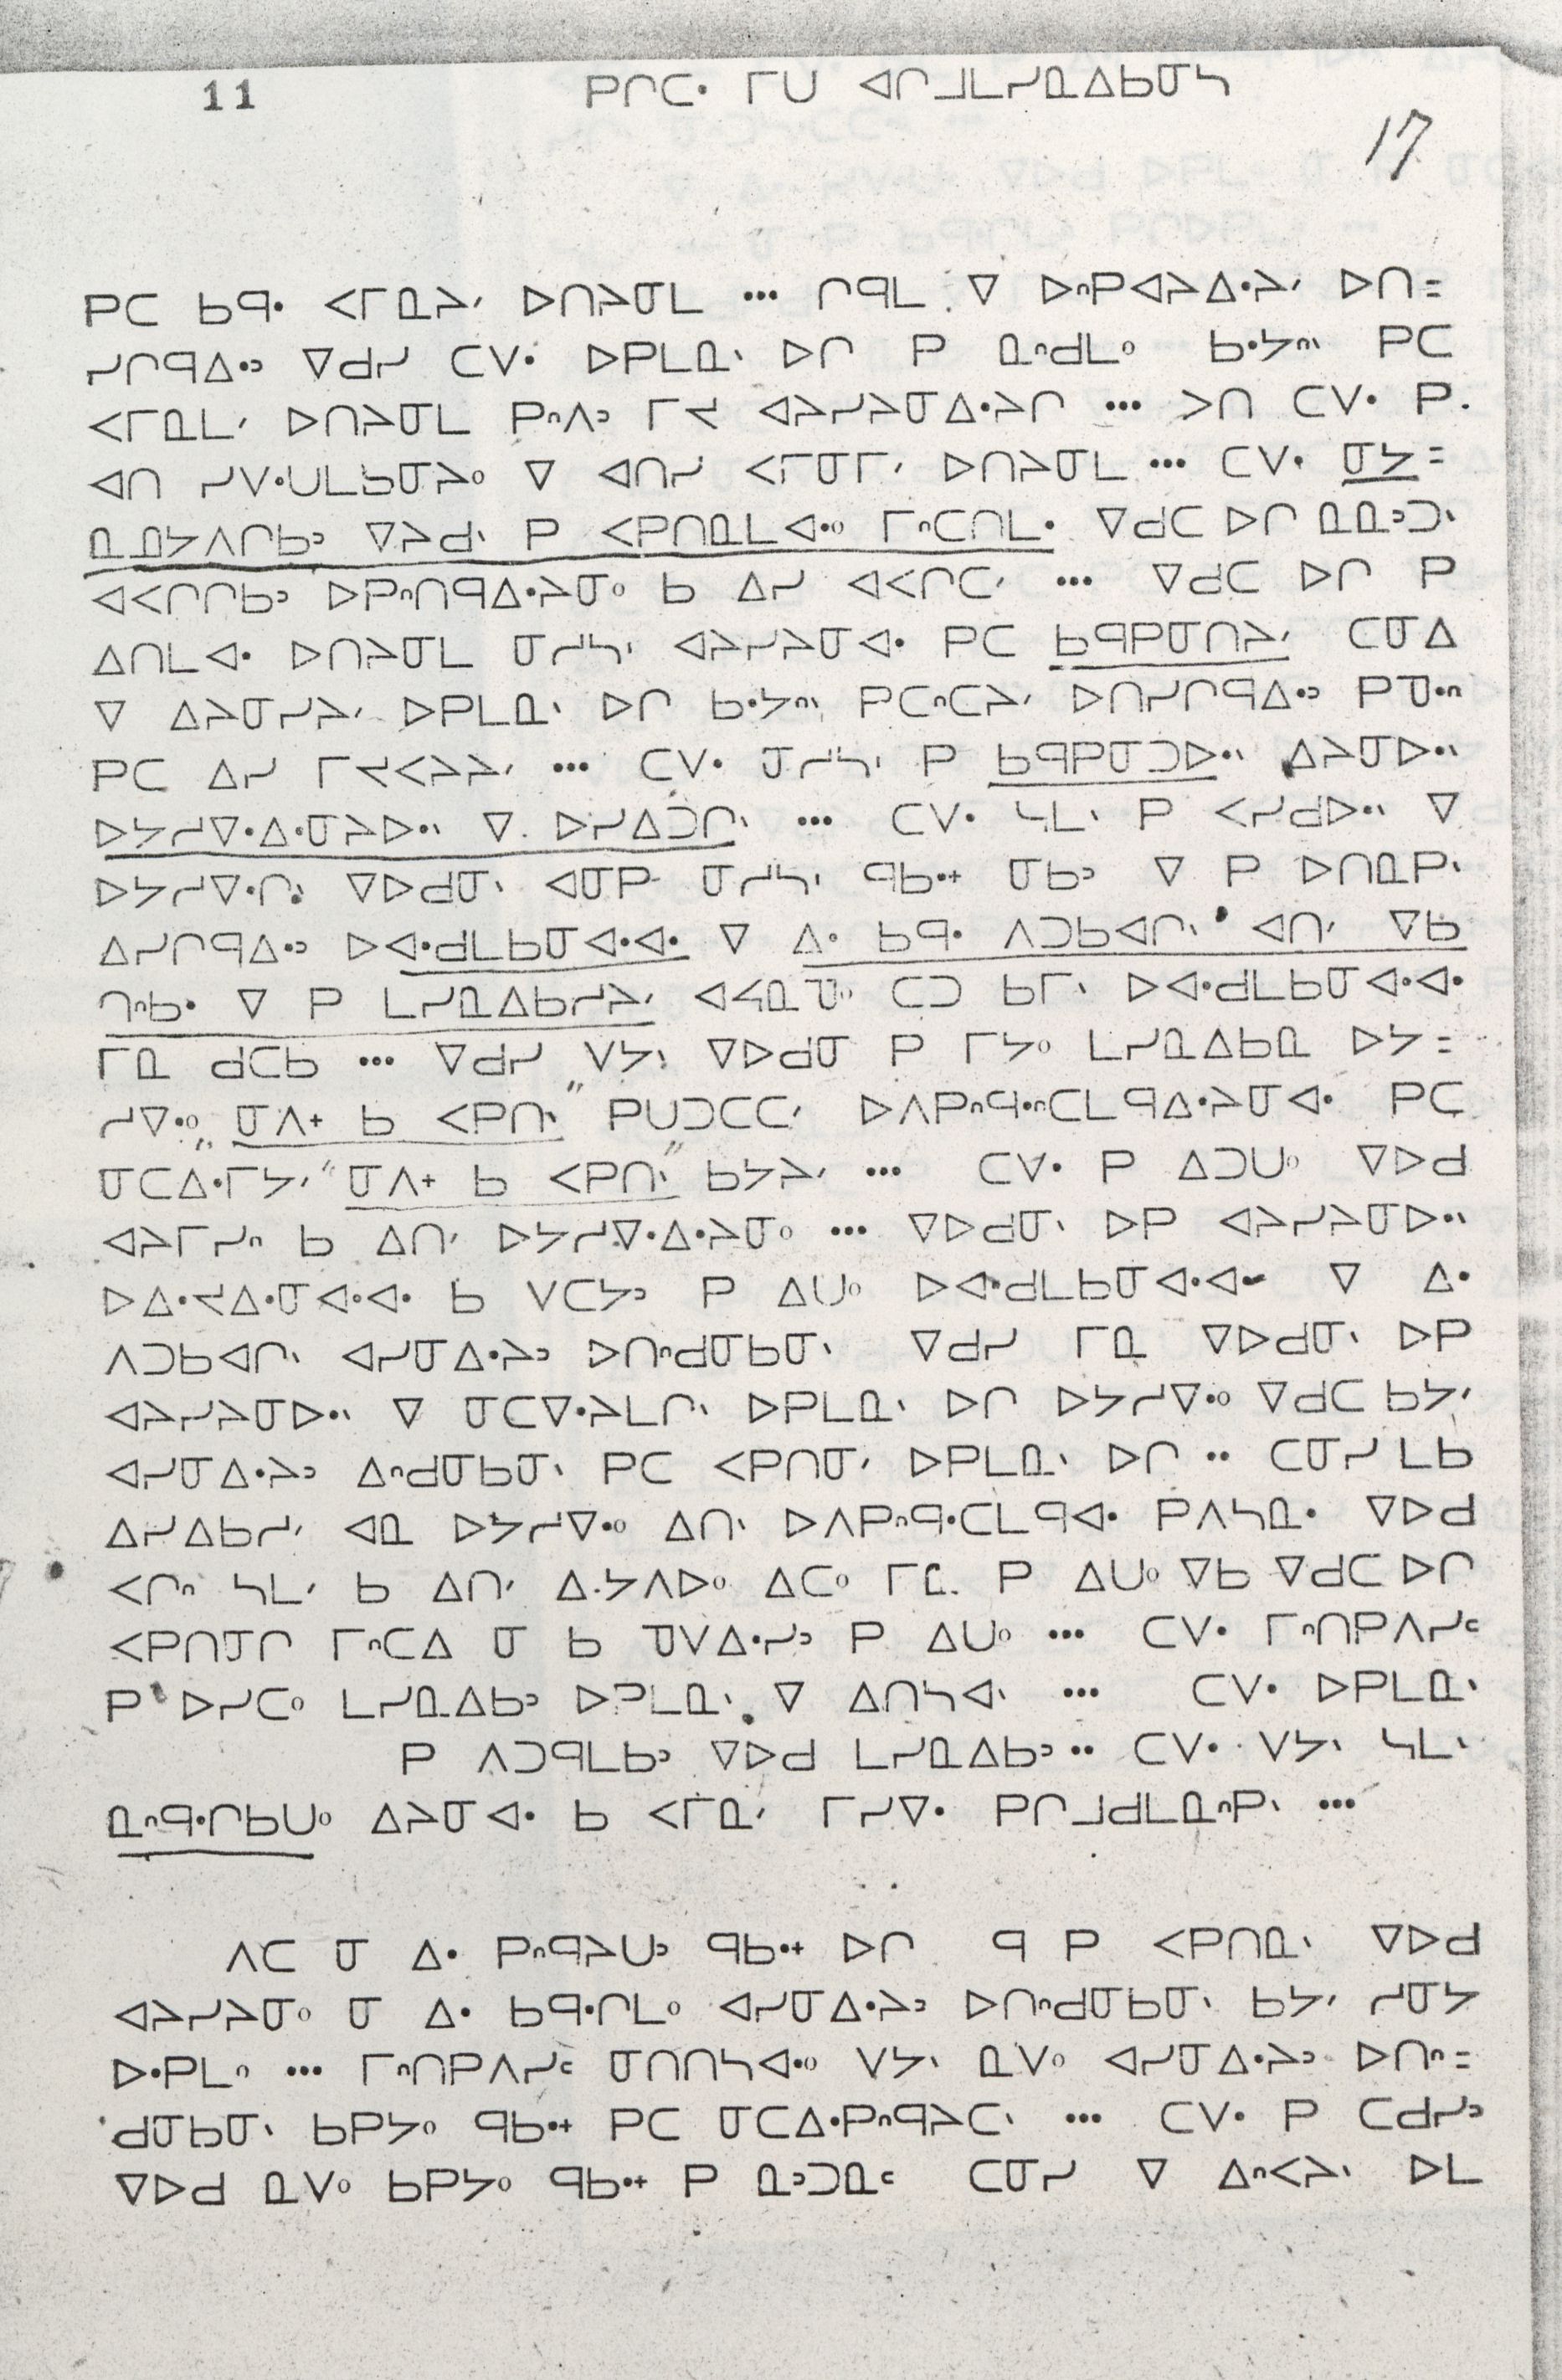 11 ᑭᒋᑕᐧ ᒥᑌ ᐊᒋᒧᒪᓯᓇᐃᑲᓂᓴ
17
ᑭᑕ ᑲᑫᐧ ᐸᒥᓇᔨᐟ ᐅᑎᔨᓂᒪ ... ᒋᑫᒪ ᐁ ᐅᐢᑭᐊᔨᐃᐧᔨᐟ ᐅᑎ=
ᓯᒋᑫᐃᐧᐣ ᐁᑯᓯ ᑕᐯᐧ ᐅᑭᒪᓇᐠ ᐅᒋ ᑭ ᓇᐢᑯᒪᐤ ᑲᐧᔭᐢᐠ ᑭᑕ
ᐸᒥᓇᒪᐟ ᐅᑎᔨᓂᒪ ᑭᐢᐱᐣ ᒥᔪ ᐊᔨᓯᔨᓂᐃᐧᔨᒋ ... ᐳᑎ ᑕᐯᐧ ᑭ.
ᐊᑎ ᓯᐯᐧᑌᒪᑲᓂᔨᐤ ᐁ ᐊᑎᓯ ᐸᒥᓂᒥᐟ ᐅᑎᔨᓂᒪ ... ᑕᐯᐧ ᓂᔭ=
ᓇᓇᔭᐱᒋᑲᐣ ᐁᔨᑯᐠ ᑭ ᐸᑭᑎᓇᒪᐊᐧᐤ ᒥᐢᑕᑎᒪᐧ ᐁᑯᑕ ᐅᒋ ᓇᓇᐣᑐᐠ
ᐊᐸᒋᒋᑲᐣ ᐅᑭᐢᑎᑫᐃᐧᔨᓂᐤ ᑲ ᐃᓯ ᐊᐸᒋᑕᐟ ... ᐁᑯᑕ ᐅᒋ ᑭ
ᐃᑎᒪᐊᐧ ᐅᑎᔨᓂᒪ ᓂᓱᓴᐠ ᐊᔨᓯᔨᓂᐊᐧ ᑭᑕ ᑲᑫᑭᓂᑎᔨᐟ ᑕᓂᐃ
ᐁ ᐃᔨᓂᓯᔨᐟ ᐅᑭᒪᓇᐠ ᐅᒋ ᑲᐧᔭᐢᐠ ᑭᑕᐢᑕᔨᐟ ᐅᑎᓯᒋᑫᐃᐧᐣ ᑭᓀᐧᐢ
ᑭᑕ ᐃᓯ ᒥᔪᐸᔨᔨᐟ ... ᑕᐯᐧ ᓂᓱᓴᐠ ᑭ ᑲᑫᑭᓂᑐᐅᐧᐠ ᐃᔨᓂᐅᐧᐠ
ᐅᔭᓱᐁᐧᐃᐧᓂᔨᐅᐧᐠ ᐁ ᐅᓯᐃᑐᒋᐠ ... ᑕᐯᐧ ᓴᒪᐠ ᑭ ᐸᓯᑯᐅᐧᐠ ᐁ
ᐅᔭᓱᐁᐧᒋᐠ ᐁᐅᑯᓂᐠ ᐊᓂᑭ ᓂᓱᓴᐠ ᑫᑲᐧᐩ ᓂᑲᐣ ᐁ ᑭ ᐅᑎᓇᑭᐠ
ᐃᓯᒋᑫᐃᐧᐣ ᐅᐊᐧᑯᒪᑲᓂᐊᐧᐊᐧ ᐁ ᐃᐧ ᑲᑫᐧ ᐱᑐᑲᐊᒋᐠ ᐊᑎᐟ ᐁᑲ
ᒋᐢᑲᐧ ᐁ ᑭ ᒪᓯᓇᐃᑲᓱᔨᐟ ᐊᔭᓇᓀᐤ ᑕᑐ ᑲᒥᐠ ᐅᐊᐧᑯᒪᑲᓂᐊᐧᐊᐧ
ᒥᓇ ᑯᑕᑲ ... ᐁᑯᓯ ᐯᔭᐠ ᐁᐅᑯᓂ ᑭ ᒥᔭᐤ ᒪᓯᓇᐃᑲᓇ ᐅᔭ=
ᓱᐁᐧᐤ "ᓂᐱᐩ ᑲ ᐸᑭᑎᐠ" ᑭᑌᑐᑕᑕᐟ ᐅᐱᑭᐢᑫᐧᐢᑕᒪᑫᐃᐧᔨᓂᐊᐧ ᑭᑕ
ᓂᑕᐃᐧᒥᔭᐟ "ᓂᐱᐩ ᑲ ᐸᑭᑎᐠ" ᑲᔭᔨᐟ ... ᑕᐯᐧ ᑭ ᐃᑐᑌᐤ ᐁᐅᑯ
ᐊᔨᒥᓯᐢ ᑲ ᐃᑎᐟ ᐅᔭᓱᐁᐧᐃᐧᔨᓂᐤ ... ᐁᐅᑯᓂᐠ ᐅᑭ ᐊᔨᓯᔨᓂᐅᐧᐠ
ᐅᐃᐧᔪᐃᐧᓂᐊᐧᐊᐧ ᑲ ᐯᑕᔭᐣ ᑭ ᐃᑌᐤ ᐅᐊᐧᑯᒪᑲᓂᐊᐧᐊᐧ ᐁ ᐃᐧ
ᐱᑐᑲᐊᒋᐠ ᐊᓯᓂᐃᐧᔨᐣ ᐅᑎᐢᑯᓂᑲᓂᐠ ᐁᑯᓯ ᒥᓇ ᐁᐅᑯᓂᐠ ᐅᑭ
ᐊᔨᓯᔨᓂᐅᐧᐠ ᐁ ᓂᑕᐁᐧᔨᒪᒋᐠ ᐅᑭᒪᓇᐠ ᐅᒋ ᐅᔭᓱᐁᐧᐤ ᐁᑯᑕ ᑲᔭᐟ
ᐊᓯᓂᐃᐧᔨᐣ ᐃᐢᑯᓂᑲᓂᐠ ᑭᑕ ᐸᑭᑎᓂᐟ ᐅᑭᒪᓇᐠ ᐅᒋ .. ᑕᓂᓯ ᒪᑲ
ᐃᓯᐃᑲᓱᐟ ᐊᓇ ᐅᔭᓱᐁᐧᐤ ᐃᑎᐠ ᐅᐱᑭᐢᑫᐧᑕᒪᑫᐊᐧ ᑭᐱᓴᓇᐧ ᐁᐅᑯ
ᐸᒋᐢ ᓴᒪᐟ ᑲ ᐃᑎᐟ ᐃᐧᔭᐱᐅᐤ ᐃᑕᐤ ᑭ ᐃᑌᐤ ᐁᑲ ᐁᑯᑕ ᐅᒋ
ᐸᑭᑎᓂᒋ ᒥᐢᑕᐃ ᓂ ᑲ ᓀᐯᐃᐧᓯᐣ ᑭ ᐃᑌᐤ ... ᑕᐯᐧ ᒥᐢᑎᑭᐱᓯᐨ
ᑭ ᐅᓯᑕᐤ ᒪᓯᓇᐃᑲᐣ ᐅᑭᒪᓇᐠ ᐁ ᐃᑎᓴᐊᐠ ... ᑕᐯᐧ ᐅᑭᒪᓇᐠ
ᑭ ᐱᑐᑫᒪᑲᐣ ᐁᐅᑯ ᒪᓯᓇᐃᑲᐣ .. ᑕᐯᐧ ᐯᔭᐠ ᓴᒪᐠ
ᓇᐢᑫᐧᒋᑲᑌᐤ ᐃᔨᓂᐊᐧ ᑲ ᐸᒥᓇᐟ ᒥᓯᐁᐧ ᑭᒋᒧᑯᒪᓇᐢᑭᐠ ...
ᐱᑕ ᓂ ᐃᐧ ᑭᐢᑫᔨᑌᐣ ᑫᑲᐧᐩ ᐅᒋ ᑫ ᑭ ᐸᑭᑎᓇᐠ ᐁᐅᑯ
ᐊᔨᓯᔨᓂᐤ ᓂ ᐃᐧ ᑲᑫᐧᒋᒪᐤ ᐊᓯᓂᐃᐧᔨᐣ ᐅᑎᐢᑯᓂᑲᓂᐠ ᑲᔭᐟ ᓱᓂᔭ
ᐅᐧᑭᒪᐤ ... ᒥᐢᑎᑭᐱᓯᐨ ᓂᑎᑎᓴᐊᐧᐤ ᐯᔭᐠ ᓇᐯᐤ ᐊᓯᓂᐃᐧᔨᐣ ᐅᑎᐢ=
ᑯᓂᑲᓂᐠ ᑲᑭᔭᐤ ᑫᑲᐧᐩ ᑭᑕ ᓂᑕᐃᐧᑭᐢᑫᔨᑕᐠ ... ᑕᐯᐧ ᑭ ᑕᑯᓯᐣ
ᐁᐅᑯ ᓇᐯᐤ ᑲᑭᔭᐤ ᑫᑲᐧᐩ ᑭ ᓇᐣᑐᓇᐨ ᑕᓂᓯ ᐁ ᐃᐢᐸᔨᐠ ᐅᒪ